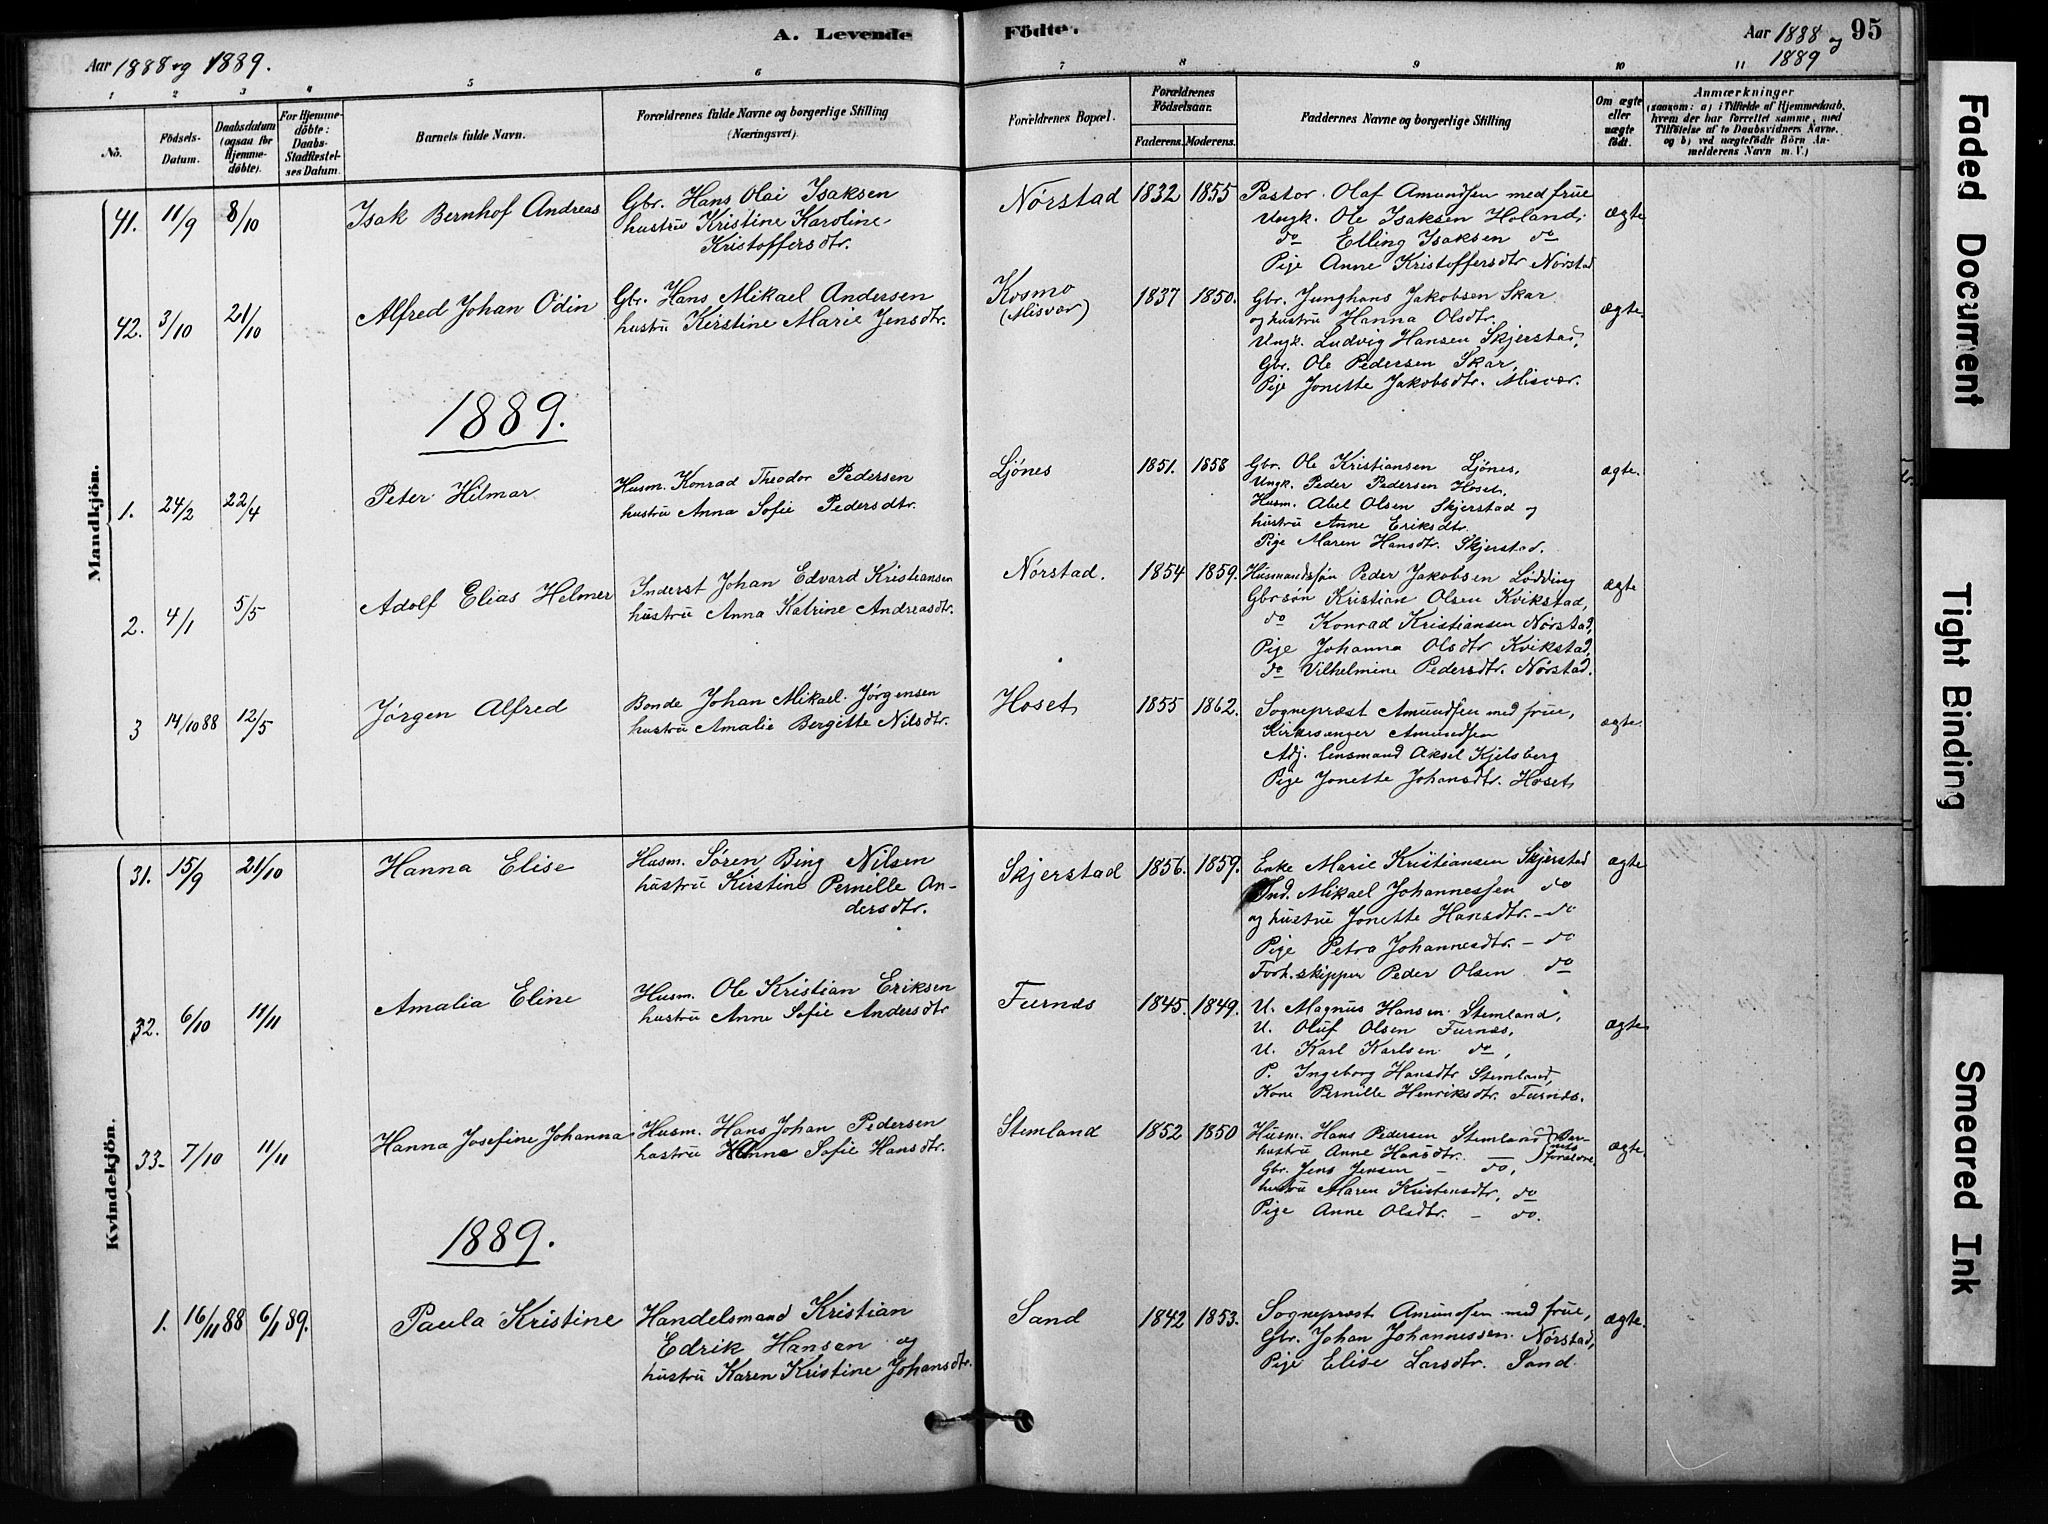 A. Levende Födte.
Aar 1888 og 1889.
Aar 1888 og 1889
95
1 2 3 4 5 6 7 8 9 10 11
No.
Födsels-Datum.
Daabsdatum (ogsaa for Hjemmedöbte).
For Hjemmedöbte: Daabs-Stadfæstelses Datum.
Barnets fulde Navn.
Forældrenes fulde Navne og borgerlige Stilling (Næringsvei).
Forældrenes Bopæl.
Forældrenes Födselsaar.
Faderens. Moderens.
Faddernes Navne og borgerlige Stilling
Om ægte eller uægte födt.
Anmærkninger
(saasom: a) i Tilfælde af Hjemmedaab, hvem der har forrettet samme, med Tilföielse af to Daabsvidners Navne, og b) ved uægtefödte Börn Anmelderens Navn m. V.)
Mandkjön.
41. 11/9 8/10 Isak Bernhof Andreas
Gbr. Hans Olai Isaksen
hustru Kristine Karoline
Kristoffersdtr.
Nørstad 1832 1855
Pastor Olaf Amundsen med frue
Ungk. Ole Isaksen Holand.
do Elling Isaksen do
Pige Anne Kristoffersdtr Nørstad
ægte
42. 3/10 21/10 Alfred Johan Odin
Gbr. Hans Mikael Andersen
hustru Kirstine Marie Jensdtr.
Kosmo
(Misvær)
1837 1850.
Gbr. Junghans Jakobsen Skar
og hustru Hanna Olsdtr.
Ungk. Ludvig Hansen Skjerstad,
Gbr. Ole Pedersen Skar,
Pige Jonette Jakobsdtr. Misvær.
ægte.
1889.
1. 24/2 22/4 Peter Hilmar
Husm. Konrad Theodor Pedersen
hustru Anna Sofie Pedersdtr.
Ljønes 1851. 1858
Gbr. Ole Kristiansen Ljønes,
Ungk. Peder Pedersen Hoset,
Husm. Abel Olsen Skjerstad og
hustru Anne Eriksdtr.
Pige Maren Hansdtr. Skjerstad.
ægte.
2. 4/1 5/5 Adolf Elias Helmer
Inderst Johan Edvard Kristiansen
hustru Anna Katrine Andreasdtr.
Nørstad. 1854 1859.
Husmandssøn Peder Jakobsen Lødding
Gbrsøn Kristian Olsen Kvikstad,
do Konrad Kristiansen Nørstad,
Pige Johanna Olsdtr Kvikstad,
do Vilhelmine Pedersdtr. Nørstad.
ægte
3 14/10 88 12/5 Jørgen Alfred
Bonde Johan Mikael Jørgensen
hustru Amalie Bergitte Nilsdtr.
Hoset 1855 1862.
Sognepræst Amundsen med frue,
Kirkesanger Amundsen
Adj. lensmand Aksel Kjelsberg
Pige Jonette Johansdtr. Hoset
ægte.
Kvindekjön.
31. 15/9 21/10 Hanna Elise
Husm. Søren Bing Nilsen
hustru Kirstine Pernille An-
dersdtr.
Skjerstad 1856. 1859.
Enke Marie Kristiansen Skjerstad
Ind. Mikael Johannessen do
og hustru Jonette Hansdtr. - do
Pige Petra Johannesdtr. - do
Forh.skipper Peder Olsen do
ægte
32. 6/10 11/11 Amalia Eline
Husm. Ole Kristian Eriksen
hustru Anne Sofie Andersdtr
Furnes 1845. 1849.
U. Magnus Hansen Stemland,
U. Oluf Olsen Furnæs,
U. Karl Karlsen do,
P. Ingeborg Hansdtr Stemland,
Kone Pernille Henriksdtr. Furnæs.
ægte
33- 7/10 11/11 Hanna Josefine Johanna
Husm. Hans Johan Pedersen
hustru Hanna Sofie Hansdtr.
Stemland 1852 1850
Husm. Hans Pedersen Stemland
hustru Anne Hansdtr. —
Gbr. Jens Jensen - do,
hustru Maren Kristensdtr, do
Pige Anne Olsdtr. - do.
ægte.
1889.
1. 16/11 88 6/1 89. Paula Kristine
Handelsmand Kristian
Edrik Hansen og
hustru Karen Kristine Johansdtr.
Sand 1842 1853.
Sognepræst Amundsen med frue,
Gbr. Johan Johannessen Nørstad,
Pige Elise Larsdtr. Sand.
ægte.
Faded Document
Tight Binding
Smeared Ink